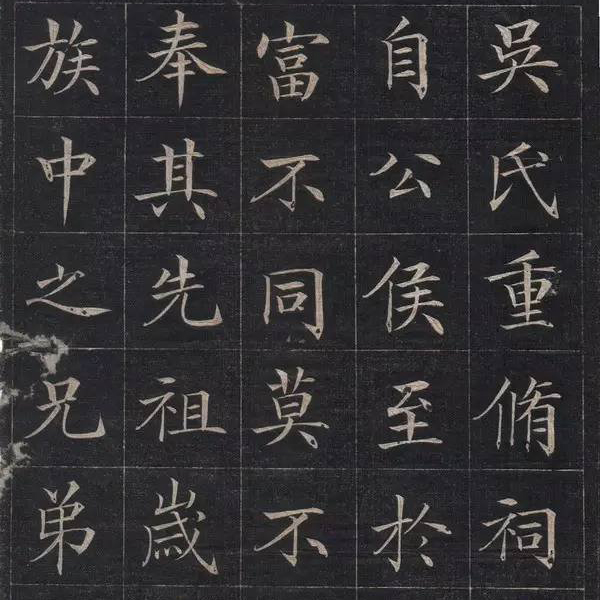 吳氏重脩祠
自公侯至於
富不同莫不
奉其先祖歲
族中之兄弟